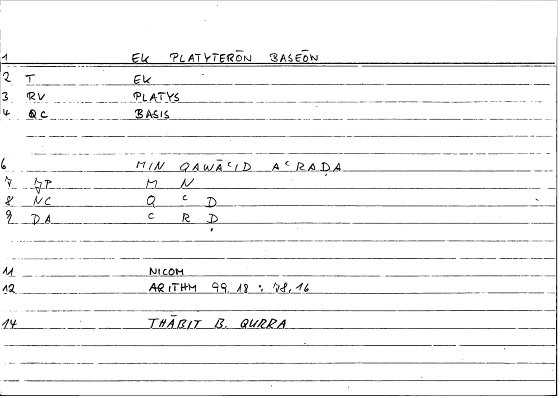 1 EK PLATYTERŌN BASEŌN
2 T EK
3 RV PLATYS
4 QC BASIS
6 MIN QAWĀᶜID AᶜRAḌA
7 JP M N
8 NC Q ᶜ D
9 DA ᶜ R Ḍ
11 NICOM
12 ARITHM 99, 18 : 78, 16
14 THĀBIT B. QURRA